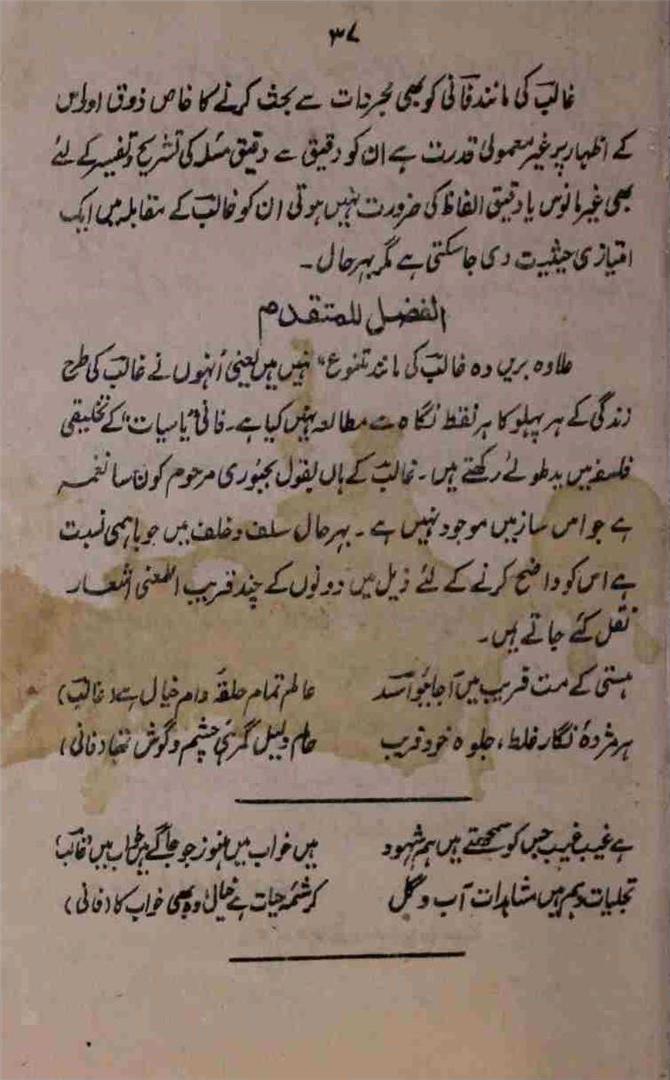 ۳۷
غالبؔ کی مانند فانی کو بھی مجردات سے بحث کرنے کا خاص ذوق اور اس
کے اظہار پر غیر معمولی قدرت ہے ان کو دقیق سے دقیق مسئلہ کی تشریح و تفسیر کے لئے
بھی غیر مانوس یا دقیق الفاظ کی ضرورت نہیں ہوتی ان کو غالبؔ کے مقابلہ میں ایک
امتیازی حیثیت دی جا سکتی ہے مگر بہر حال ۔
الفضل للمتقدم
علاوہ بریں وہ غالبؔ کی مانند متنوع" نہیں ہیں یعنی اُنہوں نے غالبؔ کی طرح
زندگی کے ہر پہلو کا ہر نقطہ نگاہ سے مطالعہ نہیں کیا ہے۔ فانی "یاسیات" کے تخلیقی
فلسفہ میں ید طولےٰ رکھتے ہیں ۔ غالبؔ کے ہاں بقول بجنوری مرحوم کون سا نغمہ
ہے جو اس ساز میں موجود نہیں ہے ۔ بہر حال سلف و خلف میں جو باہمی نسبت
ہے اس کو واضح کرنے کے لئے ذیل میں دونوں کے چند قریب المعنی اشعار
نقل کئے جاتے ہیں ۔
ہستی کے مت فریب میں آ جائیو اسدؔ عالم تمام حلقۂ دام خیال ہے (غالبؔ)
ہر مژدۂ نگار غلط، جلوہ خود فریب عالم دلیل گمرہیٔ چشم و گوش تھا (فانی)
ہے غیب غیب جس کو سمجھتے ہیں ہم شہود ہیں خواب میں ہنوز جو جاگے ہیں خواب میں (غالبؔ)
تجلیات وہم ہیں مشاہدات آب و گل کرشمۂ حیات ہے خیال وہ بھی خواب کا (فانی)